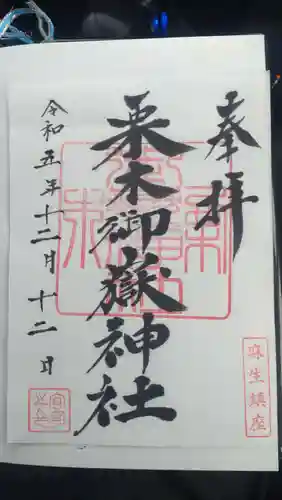 奉拝
麻生鎮座
栗木御嶽神社
令和五年十二月十二日